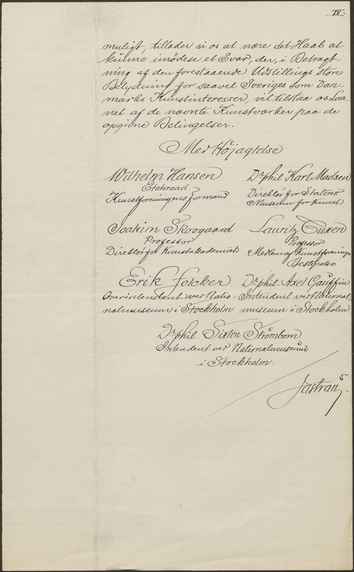 IV.
muligt, tillader vi os at nære det Haab at
kunne imødese et Svar, der, i Betragt-
ning af den forestaaende Udstillings store
Betydning for saavel Sveriges som Dan-
marks Kunstinteresser, vil tilstaa os Laa-
net af de nævnte Kunstværker paa de
opgivne Betingelser.
Med Højagtelse
Wilhelm Hansen
Etatsraad
Kunstforeningens Formand
Dr phil Karl Madsen
Direktør for Statens
Museum for Kunst
Joakim Skovgaard
Professor
Direktør for Kunstakademiet
Lauritz Tuxen
Professor
Medlem af Kunstforeningens
Bestyrelse
Erik Folcker
Overintendent ved Natio-
nalmuseum i Stockholm
Dr phil Axel Gauffin
Intendent ved National
museum i Stockholm
Dr phil Sixten Strömbom
Intendent ved Nationalmuseum
i Stockholm.